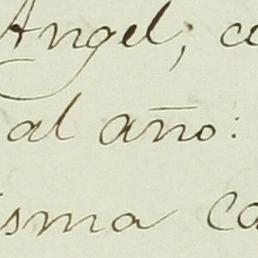 Angel; c
al año:
isma co